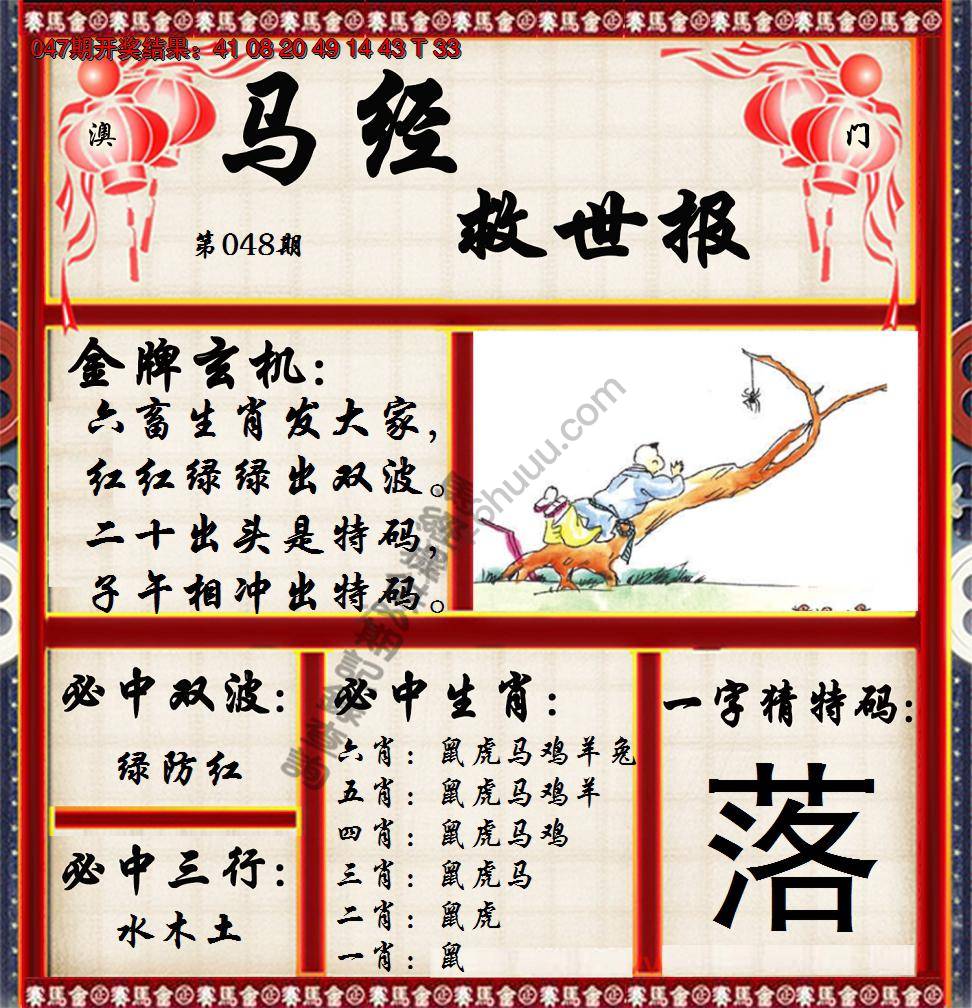 赛馬會
047期开奖结果：41 08 20 49 14 43 T 33
澳 门
马经
救世报
第048期
金牌玄机：
六畜生肖发大家，
红红绿绿出双波。
二十出头是特码，
子午相冲出特码。
必中双波：
绿防红
必中三行：
水木土
必中生肖：
六肖：鼠虎马鸡羊兔
五肖：鼠虎马鸡羊
四肖：鼠虎马鸡
三肖：鼠虎马
二肖：鼠虎
一肖：鼠
一字猜特码：
落